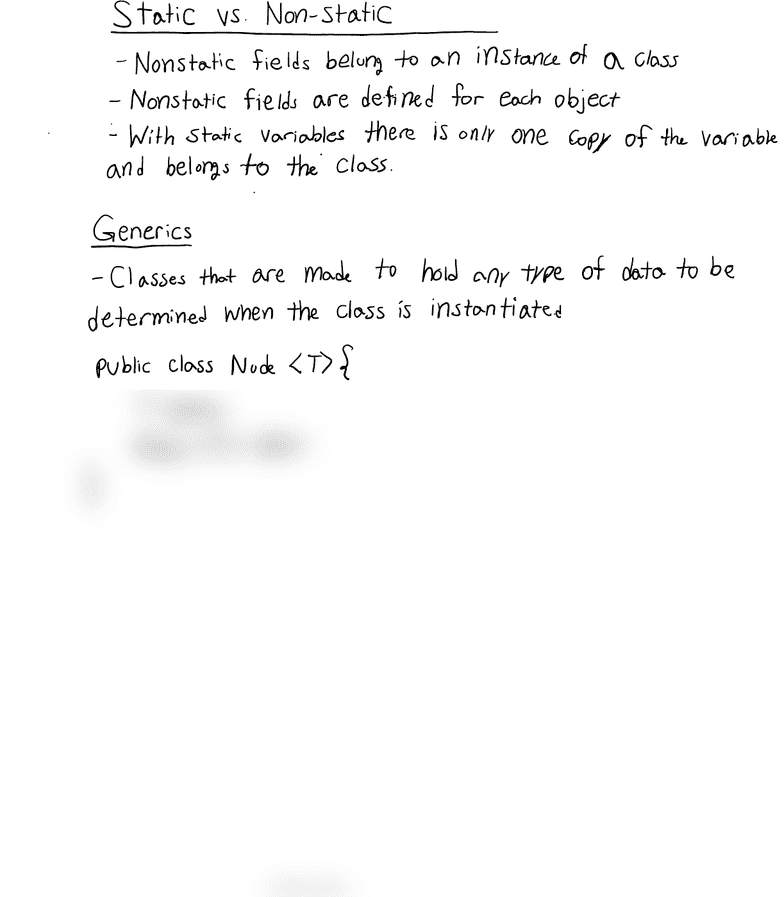 Static vs. Non-static
- Nonstatic fields belong to an instance of a class
- Nonstatic fields are defined for each object
- With static variables there is only one copy of the variable
and belongs to the class.
Generics
- Classes that are made to hold any type of data to be
determined when the class is instantiated
public class Node <T>{